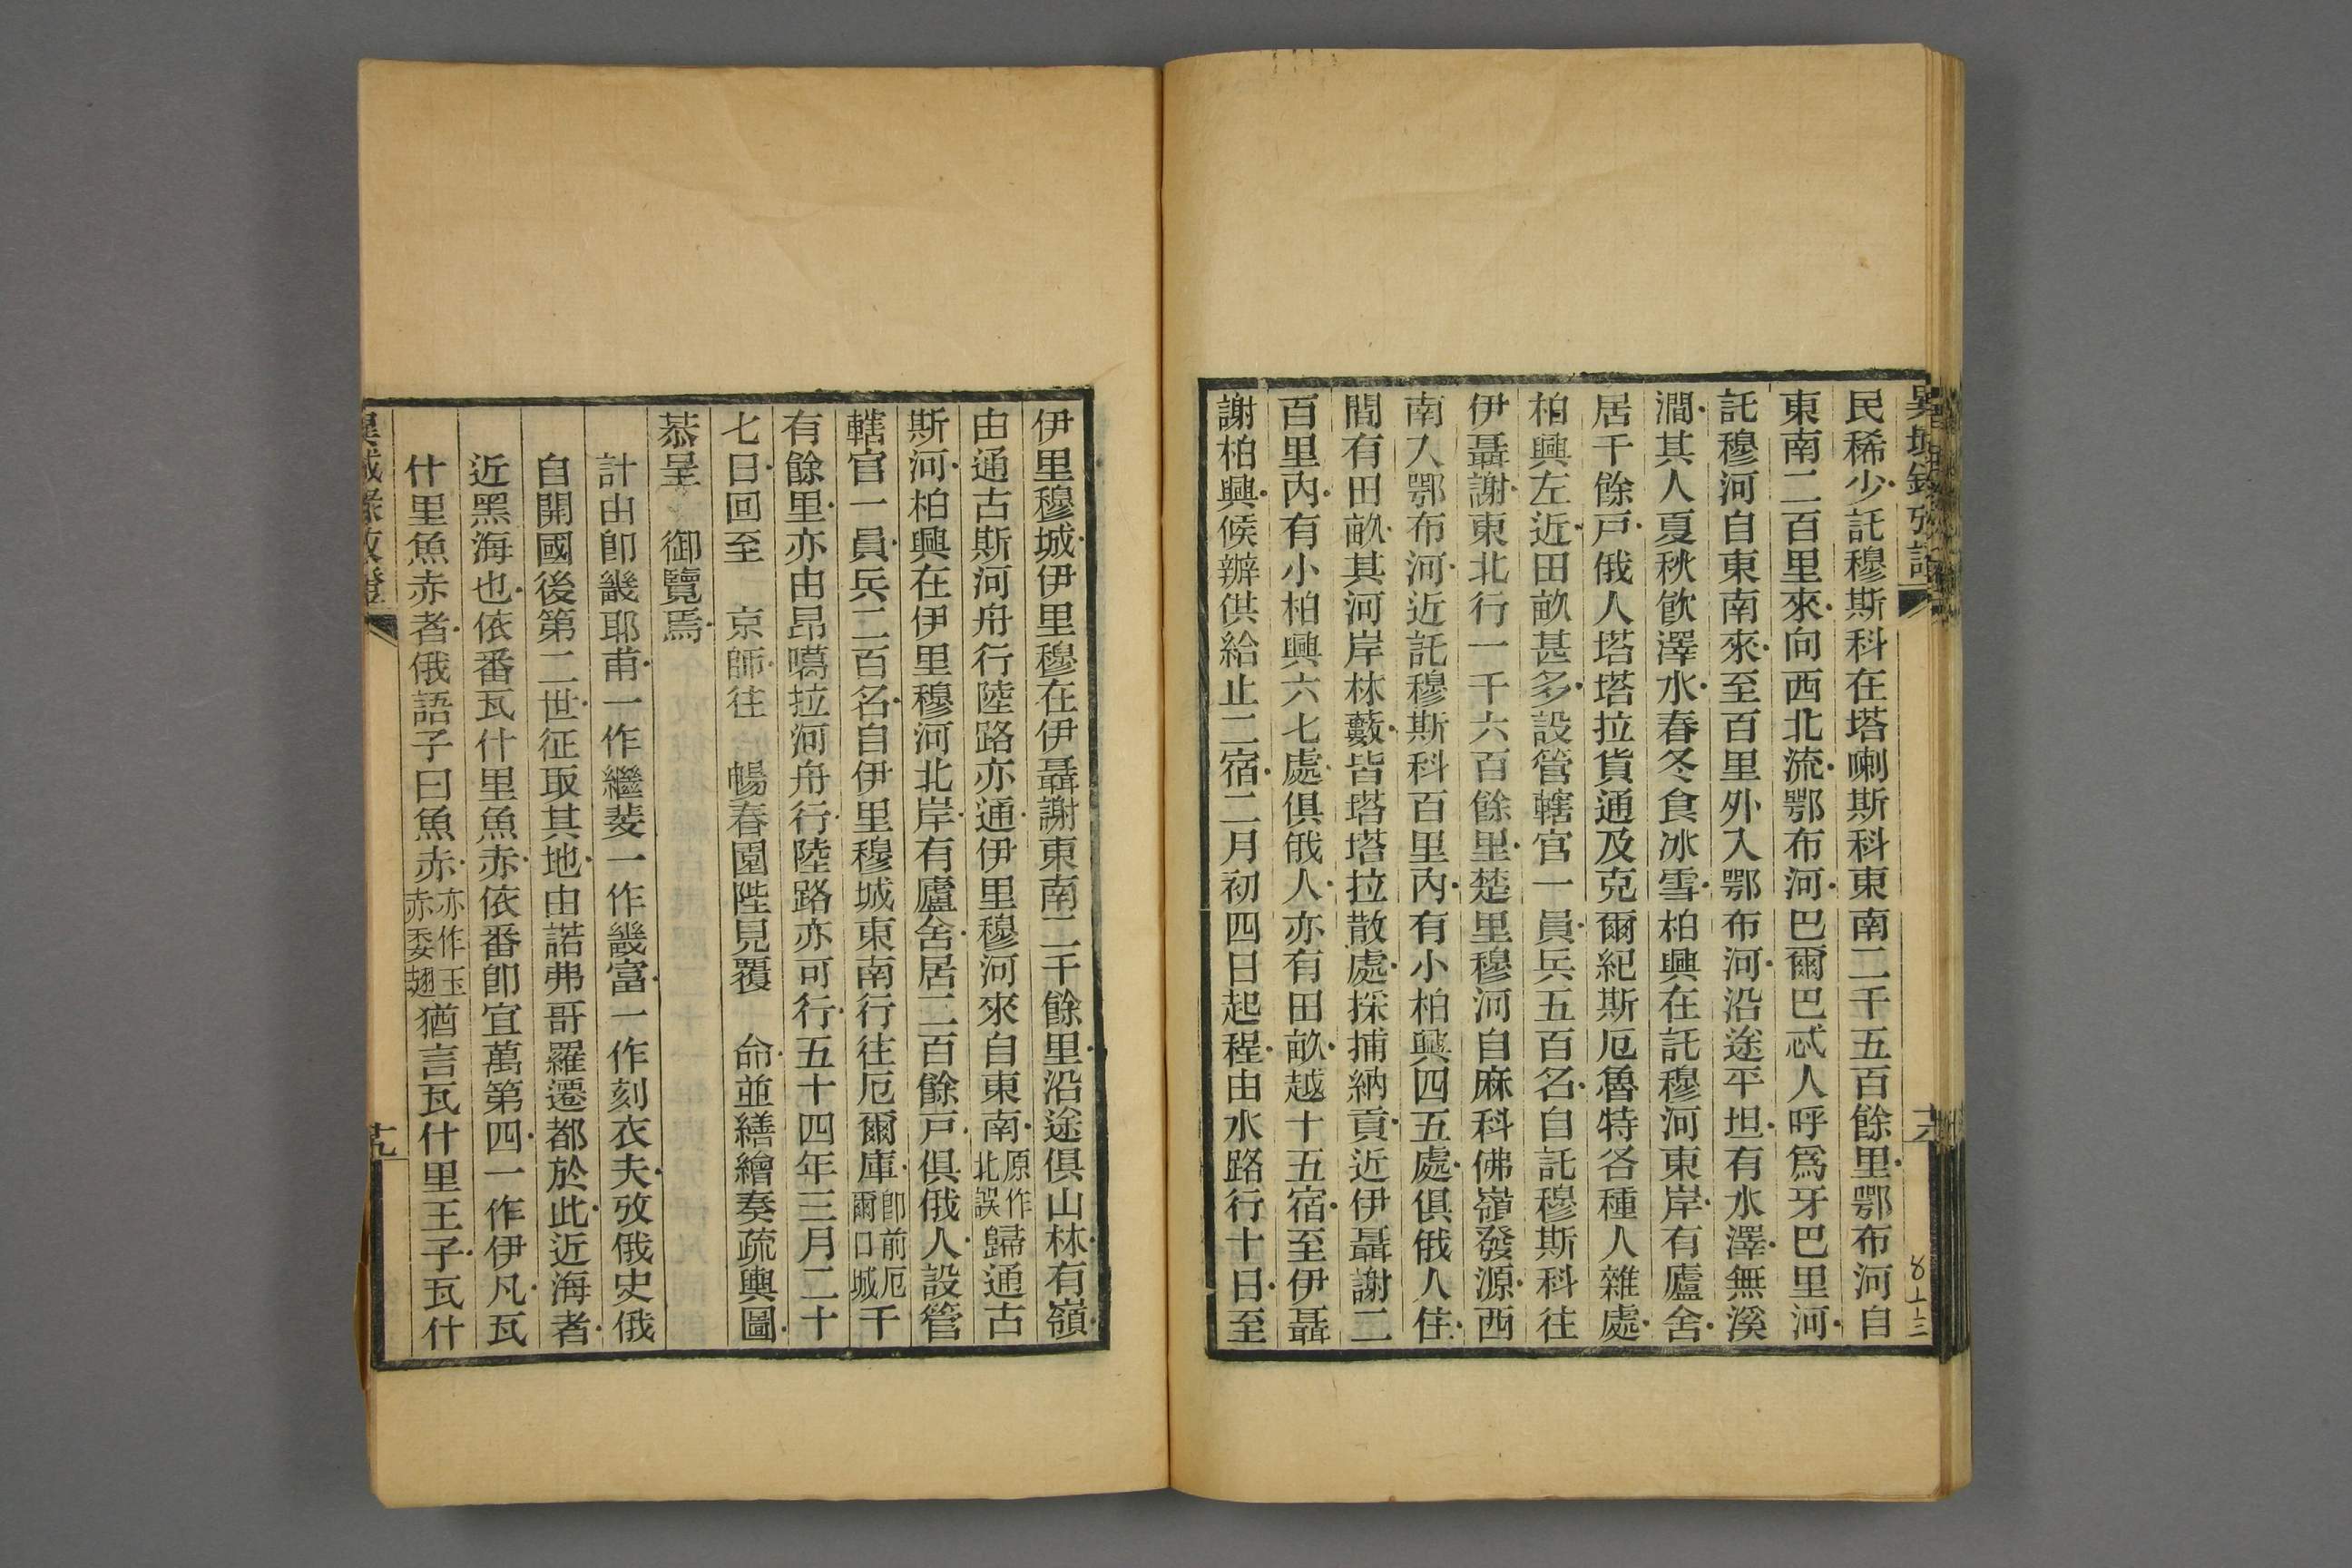 異域錄攷證
民稀少託穆斯科在塔喇斯科東南二千五百餘里鄂布河自
東南二百里來向西北流鄂布河巴爾巴忒人呼爲牙巴里河
託穆河自東南來至百里外入鄂布河沿途平坦有水澤無溪
澗其人夏秋飮澤水春冬食冰雪柏興在託穆河東岸有廬舍
居千餘戶俄人塔塔拉貨通及克爾紀斯厄魯特各種人雜處
柏興左近田畝甚多設管轄官一員兵五百名自託穆斯科往
伊聶謝東北行一千六百餘里楚里穆河自麻科佛嶺發源西
南入鄂布河近託穆斯科百里內有小柏興四五處俱俄人住
閒有田畝其河岸林藪皆塔塔拉散處採捕納貢近伊聶謝二
百里內有小柏興六七處俱俄人亦有田畝越十五宿至伊聶
謝柏興候辦供給止二宿二月初四日起程由水路行十日至
伊里穆城伊里穆在伊聶謝東南二千餘里沿途俱山林有嶺
由通古斯河舟行陸路亦通伊里穆河來自東南原作北誤歸通古
斯河柏興在伊里穆河北岸有廬舍居二百餘戶俱俄人設管
轄官一員兵二百名自伊里穆城東南行往厄爾庫卽前厄爾口城千
有餘里亦由昂噶拉河舟行陸路亦可行五十四年三月二十
七日回至 京師往 暢春園陛見覆 命並繕繪奏疏輿圖
恭呈 御覽焉
計由卽畿耶甫一作繼斐一作畿富一作刻衣夫攷俄史俄
自開國後第二世征取其地由諾弗哥羅遷都於此近海者
近黑海也依番瓦什里魚赤依番卽宜萬第四一作伊凡瓦
什里魚赤者俄語子曰魚赤亦作玉赤委趐猶言瓦什里王子瓦什
異域錄攷證
十九